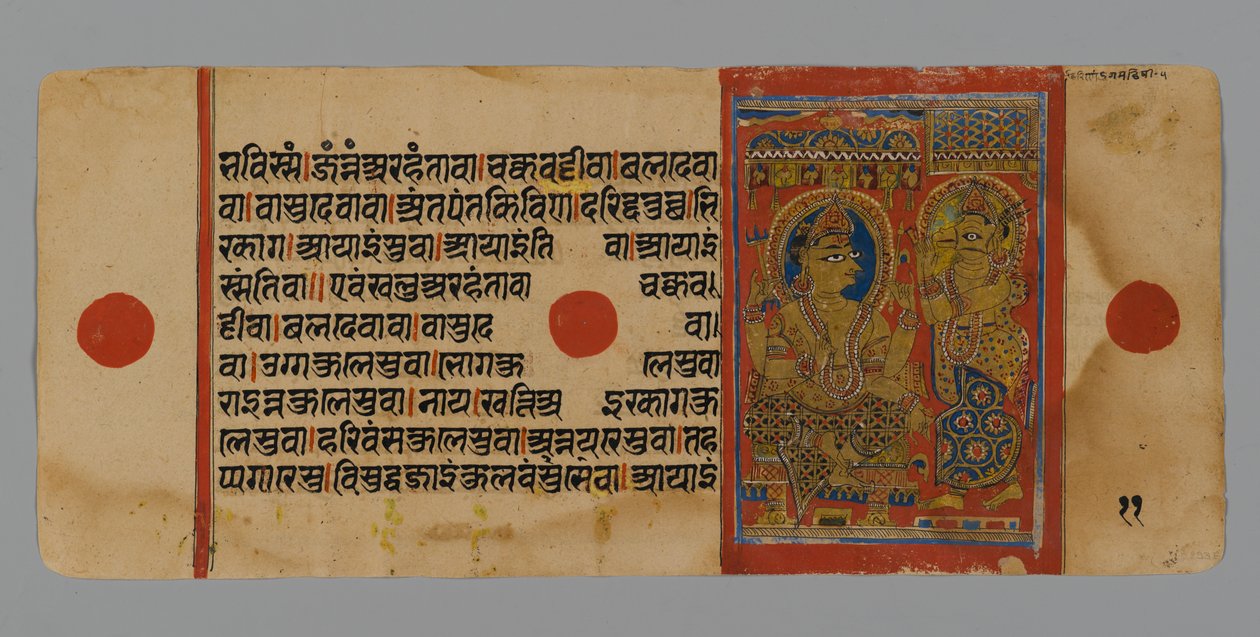 नविस्सं।जंन्नंअरहंतावा।चक्कवट्टीवा।बलदेवा
वा।वासुदेवावा।अंतपंतकिविण।दरिद्दतुच्छ।भि
क्खाग।आयाइंसुवा।आयाइंति वा।आयाइं
स्संतिवा॥एवंखलुअरहंतावा चक्कव।
ट्टीवा।बलदेवावा।वासुदे वा।
वा।उग्गकुलेसुवा।भोगकु लेसुवा
राइन्नकुलेसुवा।नाय।खत्तिअ इक्खागकु
लेसुवा।हरिवंसकुलेसुवा।अन्नयरेसुवा।तह
प्पगारेसु।विसुद्धजाइंकुलवंसेसुवा।आयाइं
११